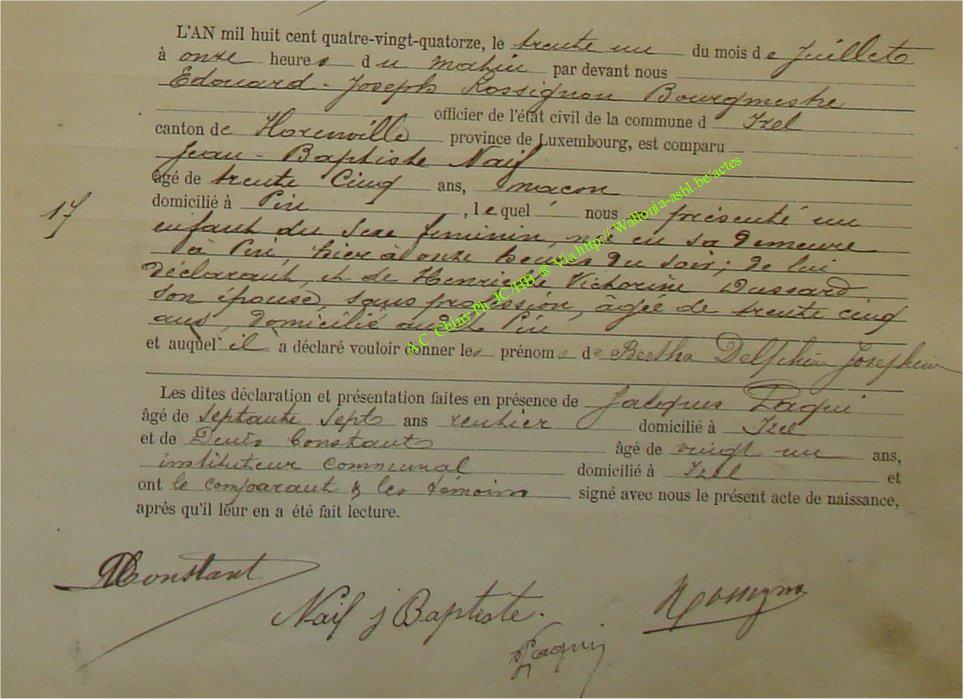 L'AN mil huit cent quatre-vingt-quatorze, le trente un du mois de Juillet
à onze heures du matin par devant nous
Edouard-Joseph Rossignon Bourgmestre
officier de l'état civil de la commune d Izel
canton de Florenville province de Luxembourg, est comparu
Jean-Baptiste Naif
âgé de trente cinq ans, maçon
17
domicilié à Pin, lequel nous a présenté un
enfant du sexe feminin, né en sa demeure
à Pin, hier à onze heures du soir; de lui
déclarant, et de Henriette Victorine Dussard
son épouse, sans profession, âgée de trente cinq
ans, domicilié audit Pin
et auquel il a déclaré vouloir donner les prénoms de Bertha Delphine Josephine
Les dites déclaration et présentation faites en présence de Jacques Paqui
âgé de septante sept ans rentier domicilié à Izel
et de Denis Constant âgé de vingt un ans,
instituteur communal domicilié à Izel et
ont le comparant & les témoins signé avec nous le présent acte de naissance,
après qu'il leur en a été fait lecture.
DConstant
Naif j Baptiste.
Paqui
Rossignon
A.C. Chiny Ph. JC/HB ® Via http://Wallonia-asbl.be/actes